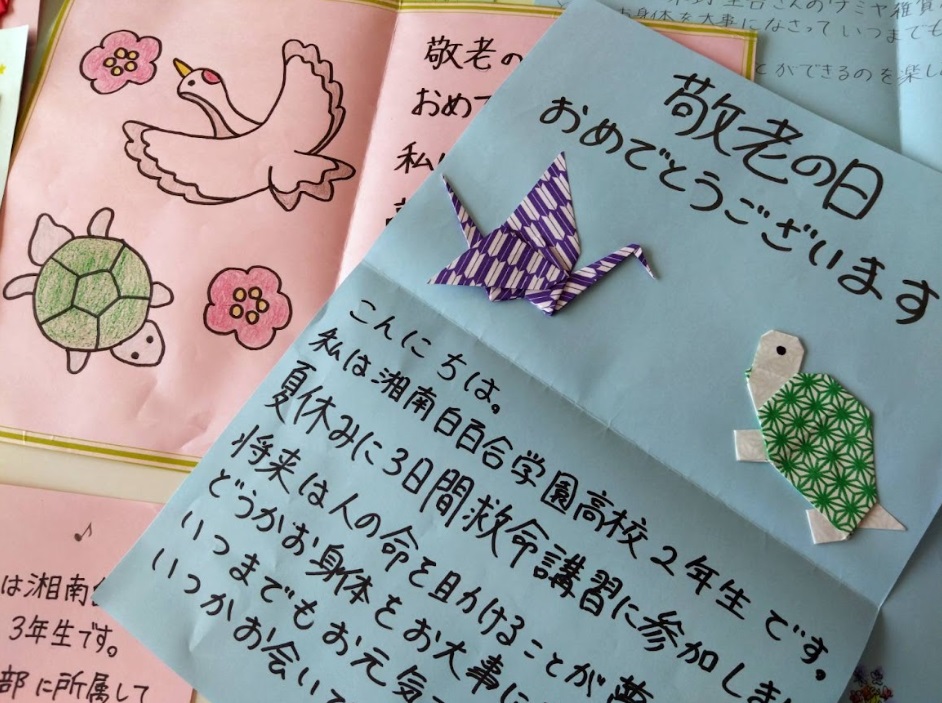 敬老の
おめで
私は
お身体を大事になさっていつまでも
とができるのを楽し
敬老の日
おめでとうございます
こんにちは。
私は湘南白百合学園高校2年生です。
夏休みに3日間救命講習に参加しま
将来は人の命を助けることが夢
どうかお身体をお大事に
いつまでもお元気
いつかお会いて
は湘南
3年生です。
部に所属して